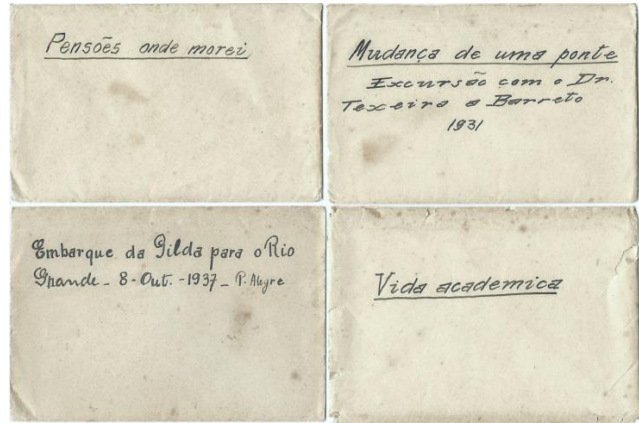 Pensões onde morei
Mudança de uma ponte
Excursão com o Dr.
Texeira a Barreto
1931
Embarque da Gilda para o Rio
Grande - 8 - Out. - 1937 - P. Alegre
Vida academica